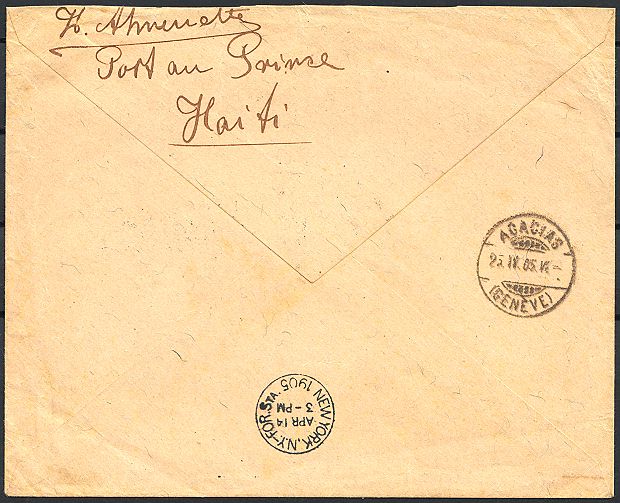 Port au Prinse
Haiti
ACACIAS
25. IV. 05. VI
(GENÈVE)
NEW YORK, N.Y.-FOR. STA.
APR 14
3-PM
1905